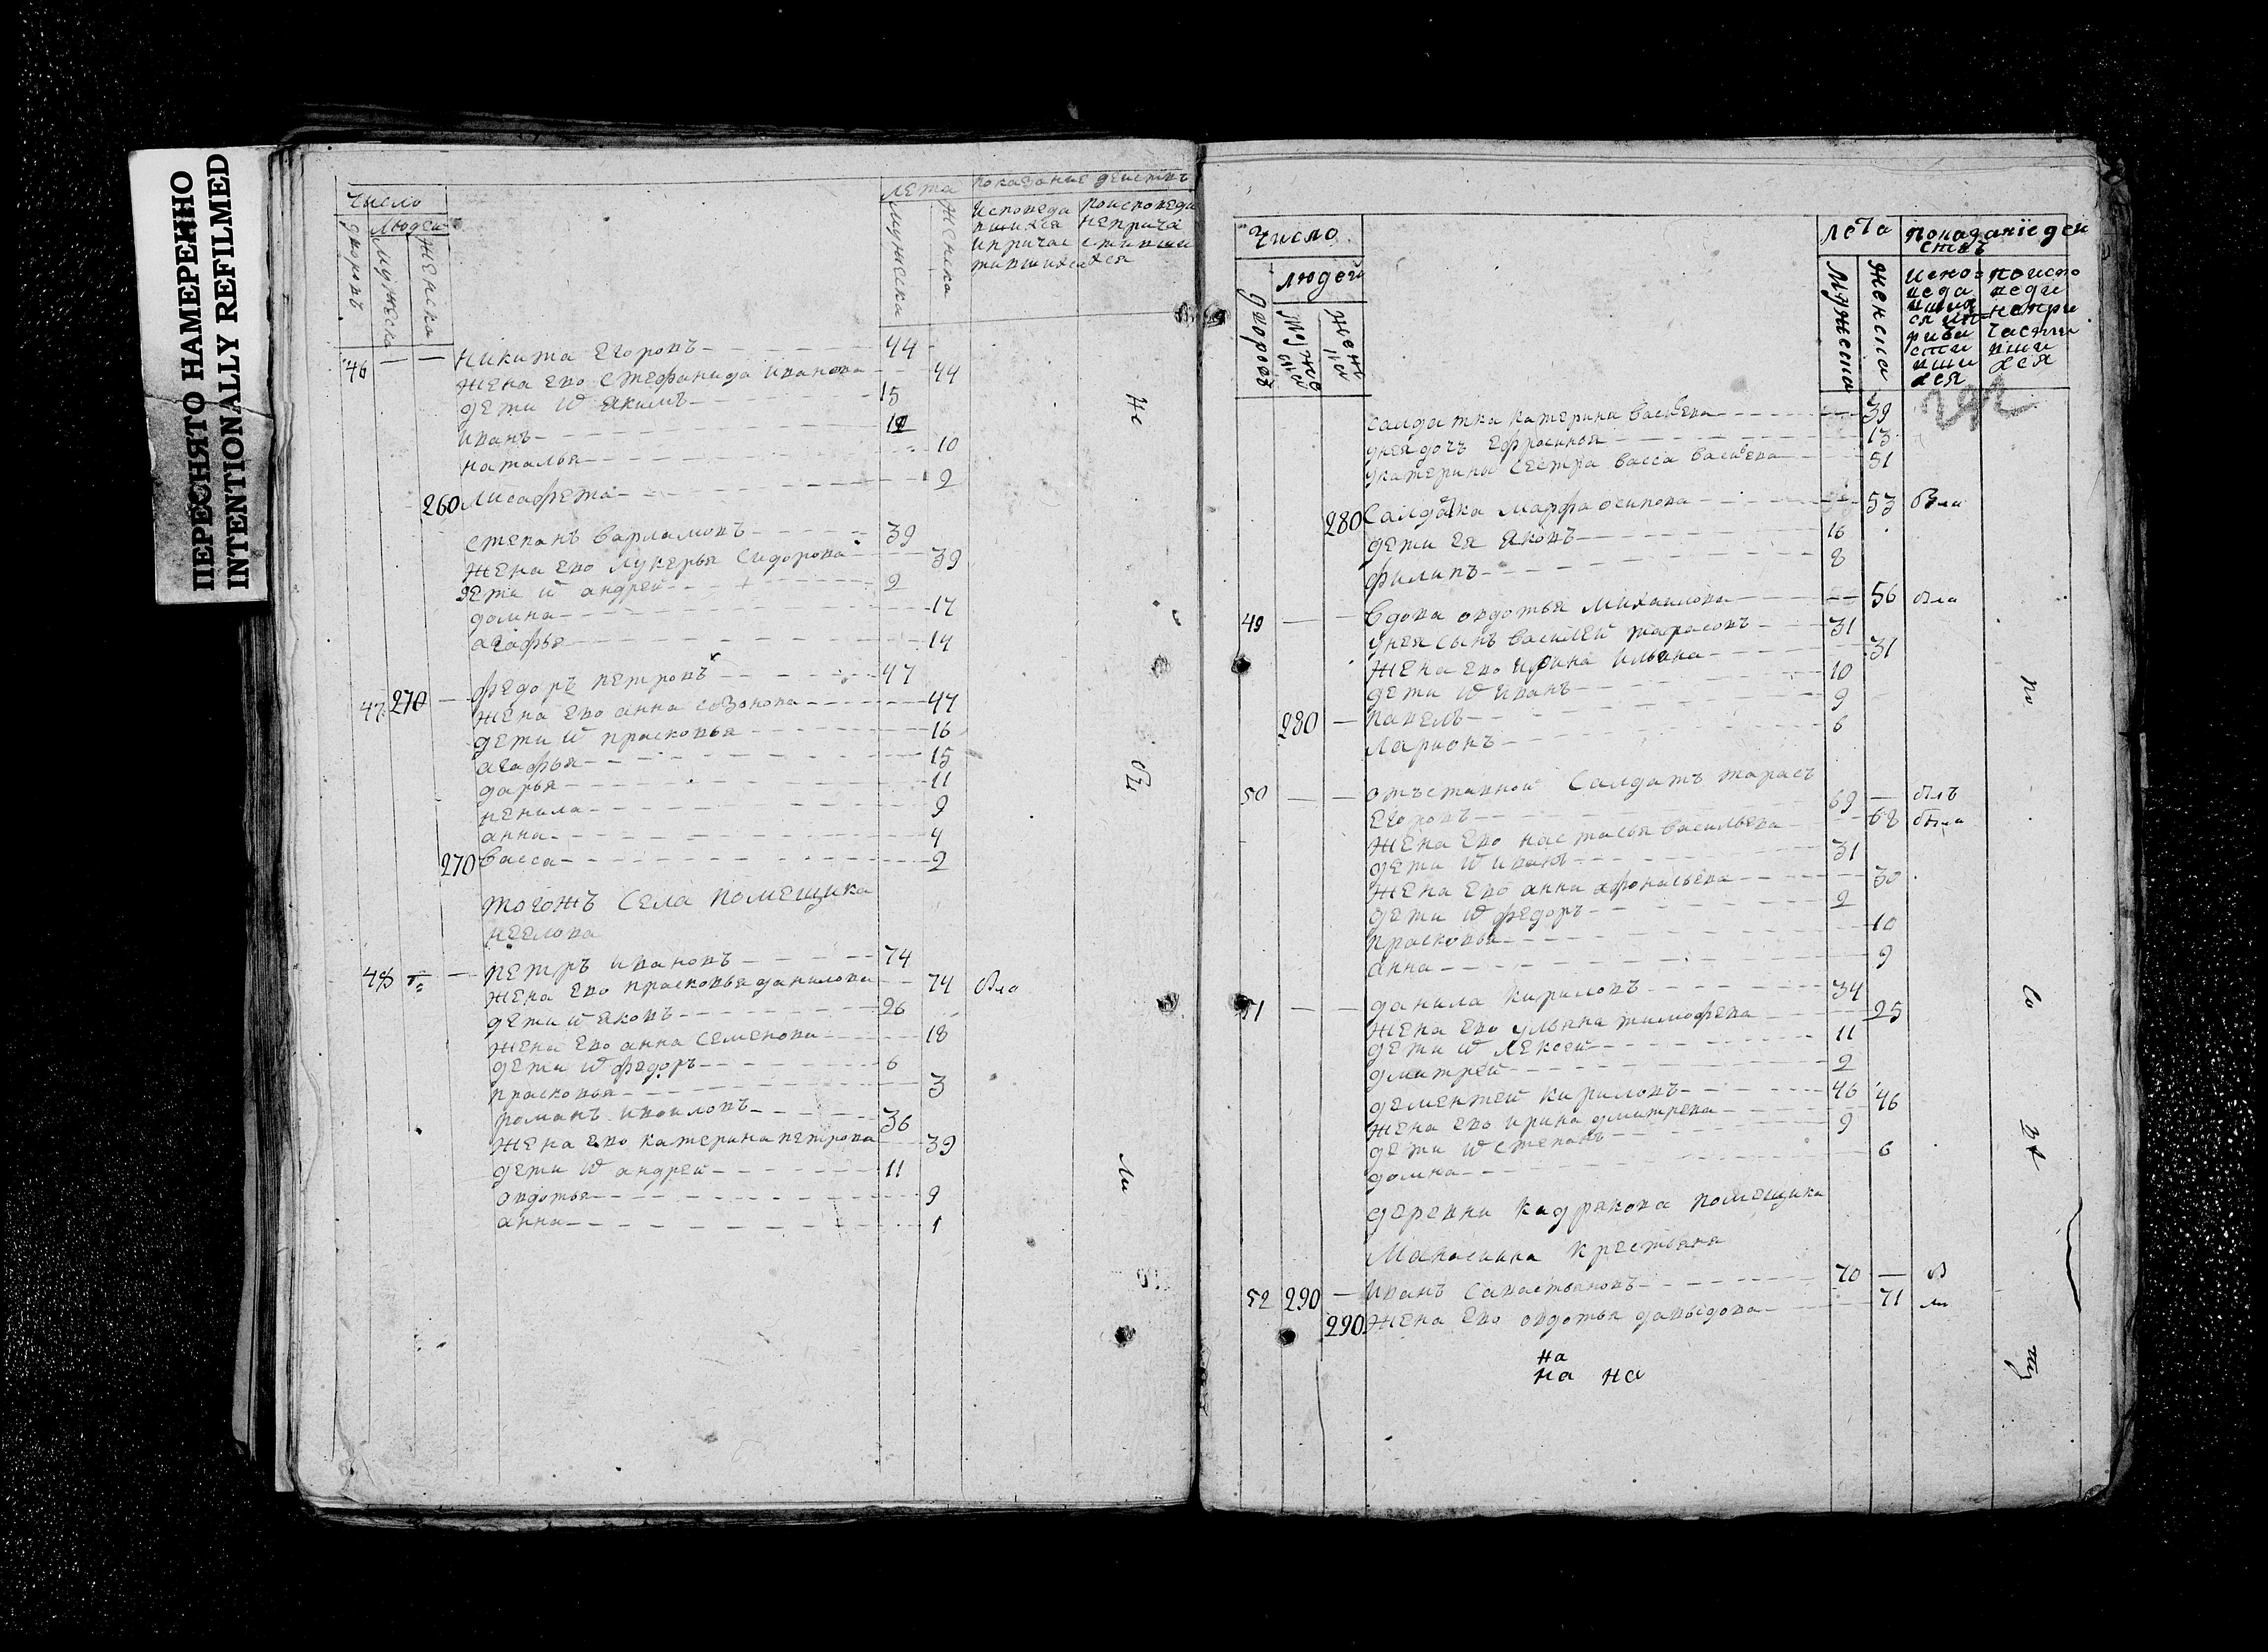 ПЕРЕСНЯТО НАМЕРЕННО
INTENTIONALLY REFILMED
Число
дворовъ
Людей
Мужеска
Женска
Лета
Мужеска
Женска
Показание действъ
Исповеда
вшихся
и причас
тившихся
По исповеди
не прича
стивши
хся
46 — — никита егоровъ 44
жена ево стефанида иванова 44
дети и҃ якимъ 15
иванъ
наталья 10
260 лисафета 2
степанъ варламовъ 39
жена ево лукерья сидорова 39
дети и҃ андрей 2
домна 17
агафья 14
47 270 — федоръ петровъ 47
жена ево анна созонова 47
дети и҃ прасковья 16
агафья 15
дарья 11
ненила 9
анна 4
270 васса 2
тогожъ села помещика
неелова
48 — петръ ивановъ 74
жена ево прасковья данилова 74
дети и҃ яковъ 26
жена ево анна семенова 18
дети и҃ федоръ 6
прасковья 3
романъ 36
жена ево катерина петрова 39
дети и҃ андрей 11
овдотья 9
анна 1
не
бы
ли
Число
дворовъ
людей
Лета
Мужеска
Женска
Показание дей
ствъ
292
салдатка катерина васильева 39
у нея дочь ефросинья 13
у катерины сестра васса васильева 51
280 салдатка марфа осипова 53
дети ея яковъ 16
филипъ 8
49 — — вдова овдотья михаилова 56
у нея сынъ василей тарасовъ 31
жена ево ирина ильина 31
дети и҃ иванъ 10
280 — павелъ 9
ларионъ 6
50 — — отъставной салдатъ тарасъ
егоровъ 69 —
жена ево настасья васильева 68
дети и҃ иванъ 31
жена ево анна афонасьева 30
дети и҃ федоръ 2
прасковья 10
анна 9
51 — — данила кириловъ 34
жена ево ульяна тимофева 25
дети и҃ лексей 11
дмитрей 2
дементей кириловъ 46
жена ево ирина дмитрева 46
дети и҃ степанъ 9
домна 6
деревни кадрякова помещика
крестьяня
52 290 — иванъ савастьяновъ 70 —
290 жена ево овдотья давыдова 71
на
на на
по
со